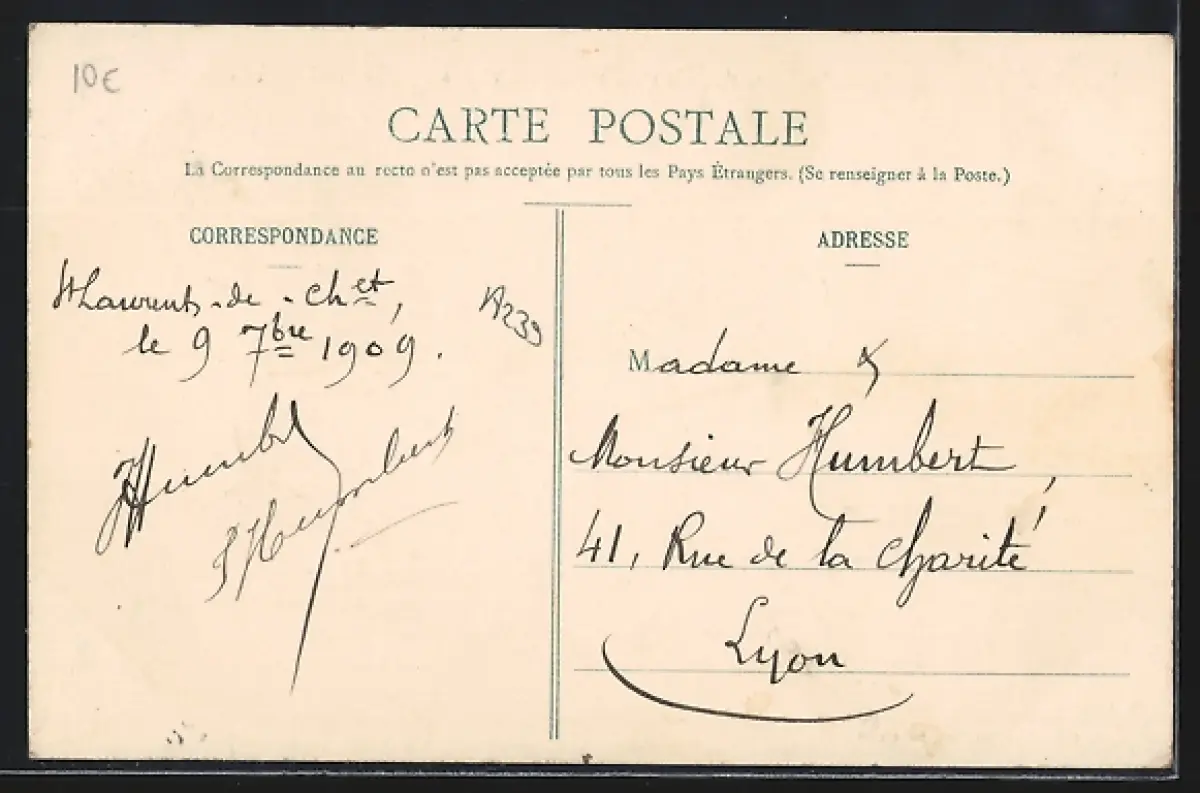 10€
CARTE POSTALE
La Correspondance au recto n'est pas acceptée par tous les Pays Étrangers. (Se renseigner à la Poste.)
CORRESPONDANCE
St Laurent-de-Chet,
le 9 7bre 1909.
A239
Humbert
Humbert
ADRESSE
Madame &
Monsieur Humbert,
41, Rue de la Charité
Lyon